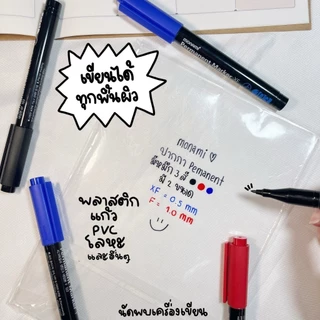 เขียนได้
ทุกพื้นผิว
monami
Permanent Marker
monami ♡
ปากกา Permanent
มีหมึก 3 สี
มี 2 ขนาด
XF = 0.5 mm
F = 1.0 mm
พลาสติก
แก้ว
PVC
โลหะ
และอื่นๆ
นัดพบเครื่องเขียน